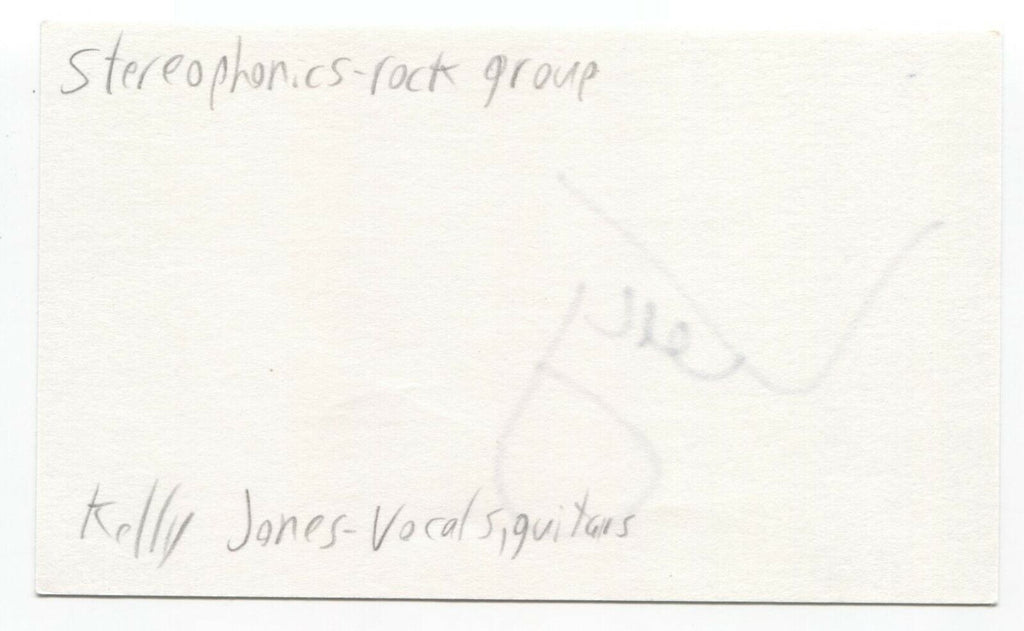 Stereophonics-rock group
Kelly Jones-Vocals, guitars